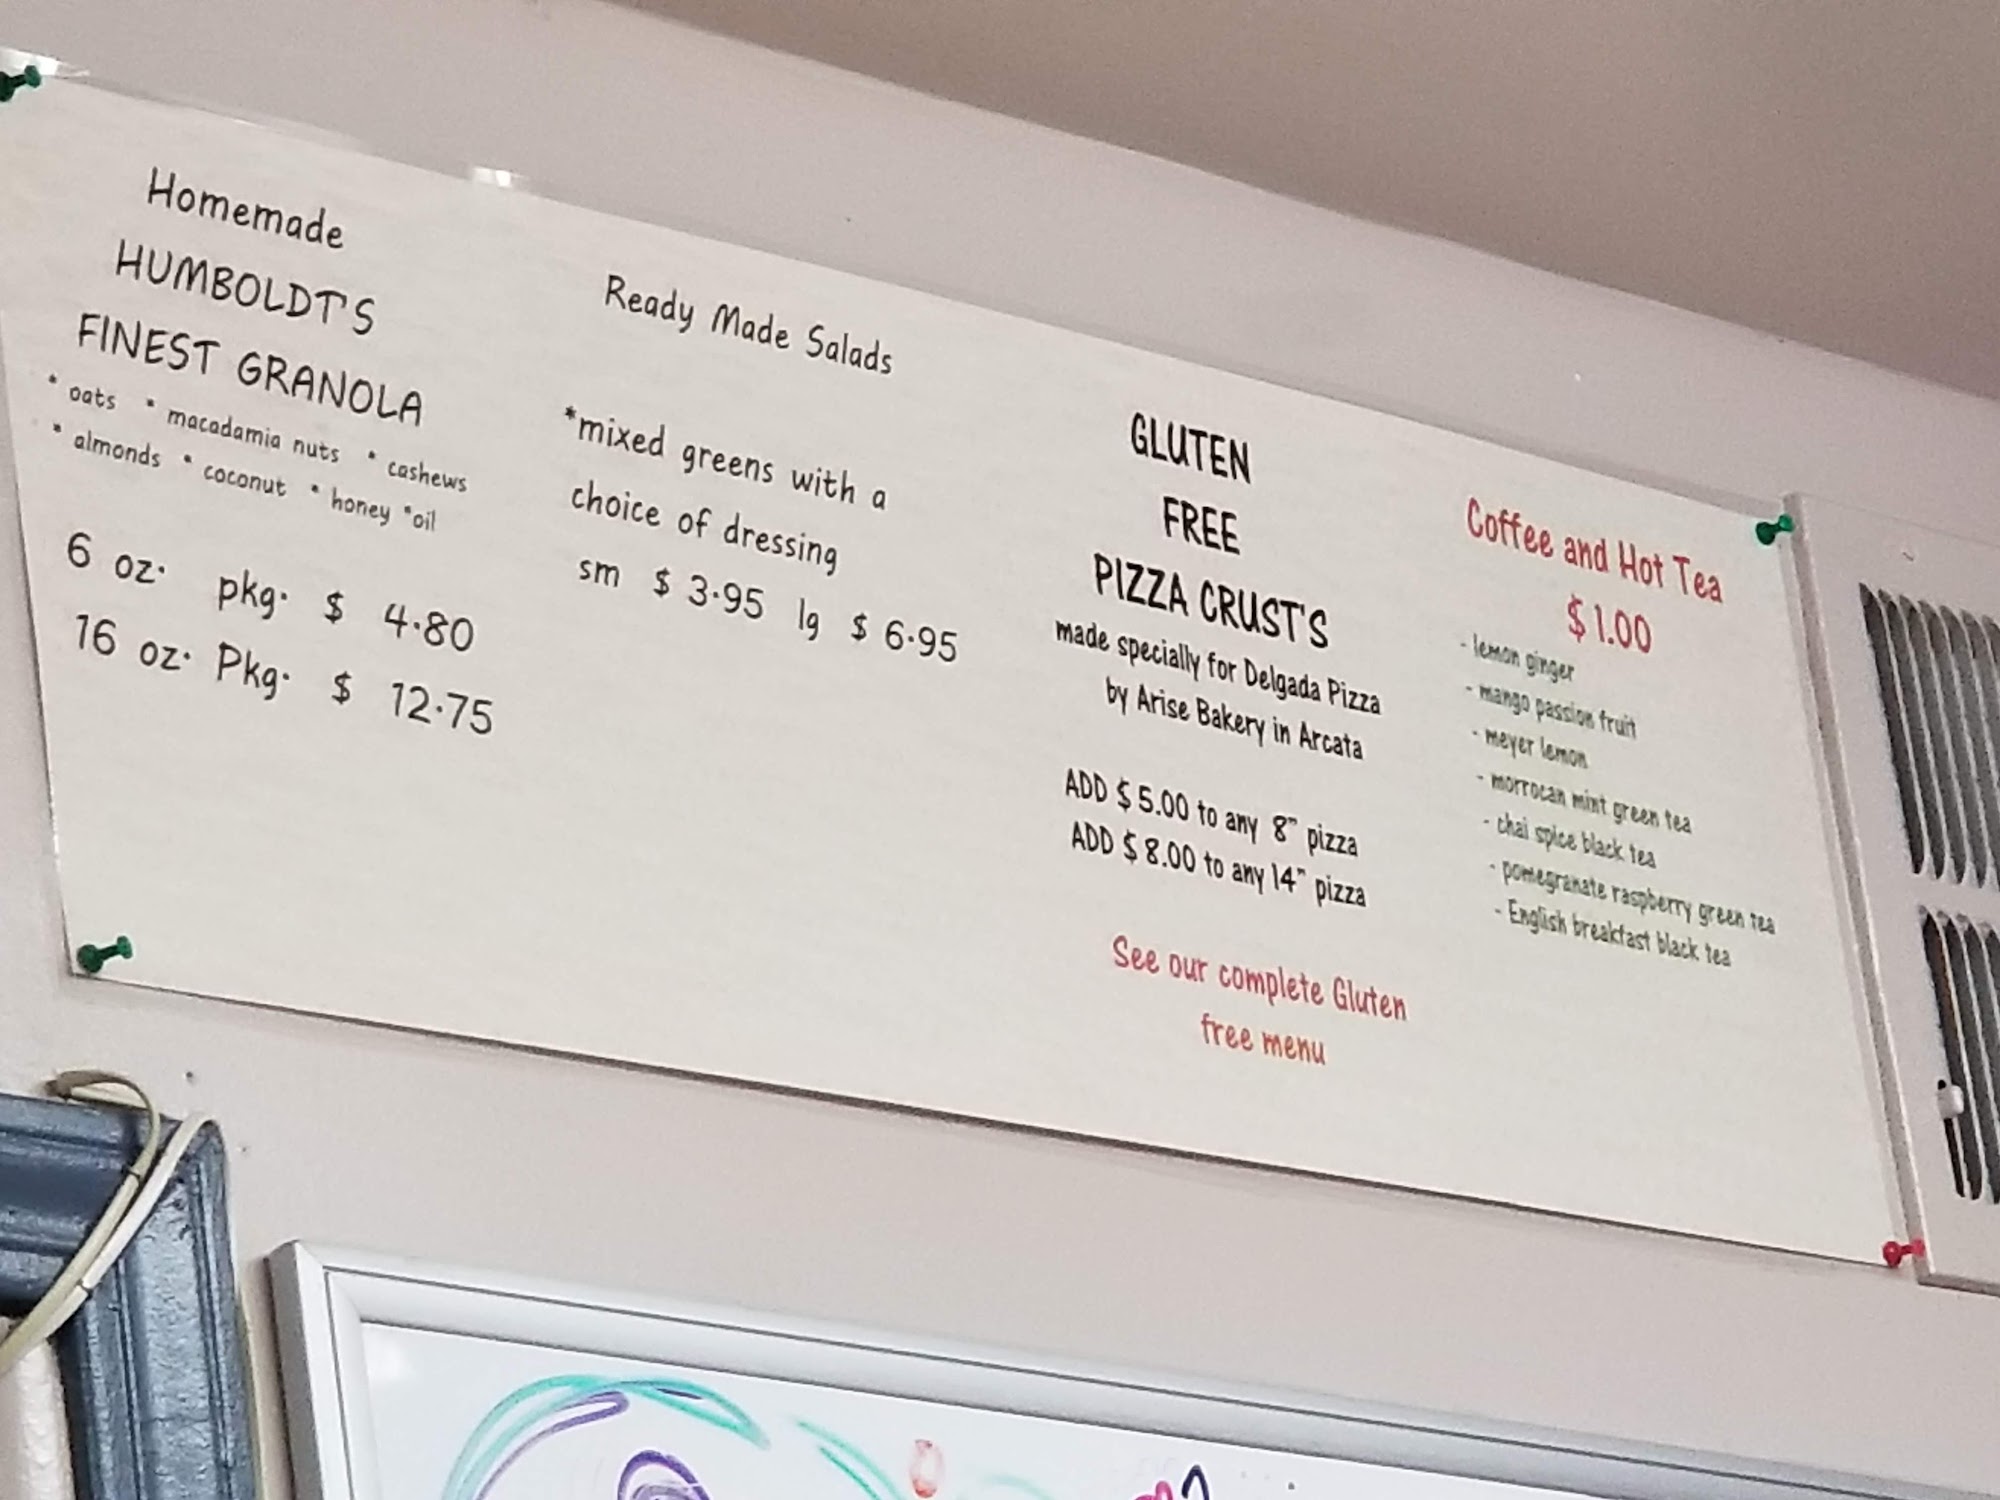 Homemade
HUMBOLDT'S
FINEST GRANOLA
* oats * macadamia nuts * cashews
* almonds * coconut * honey *oil
6 oz. pkg. $ 4.80
16 oz. Pkg. $ 12.75
Ready Made Salads
*mixed greens with a
choice of dressing
sm $ 3.95 lg $ 6.95
GLUTEN
FREE
PIZZA CRUST'S
made specially for Delgada Pizza
by Arise Bakery in Arcata
ADD $ 5.00 to any 8" pizza
ADD $ 8.00 to any 14" pizza
See our complete Gluten
free menu
Coffee and Hot Tea
$ 1.00
- lemon ginger
- mango passion fruit
- meyer lemon
- morrocan mint green tea
- chai spice black tea
- pomegranate raspberry green tea
- English breakfast black tea